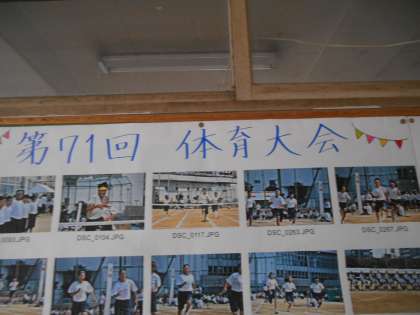 第71回 体育大会
DSC_0104.JPG DSC_0117.JPG DSC_0263.JPG DSC_0267.JPG